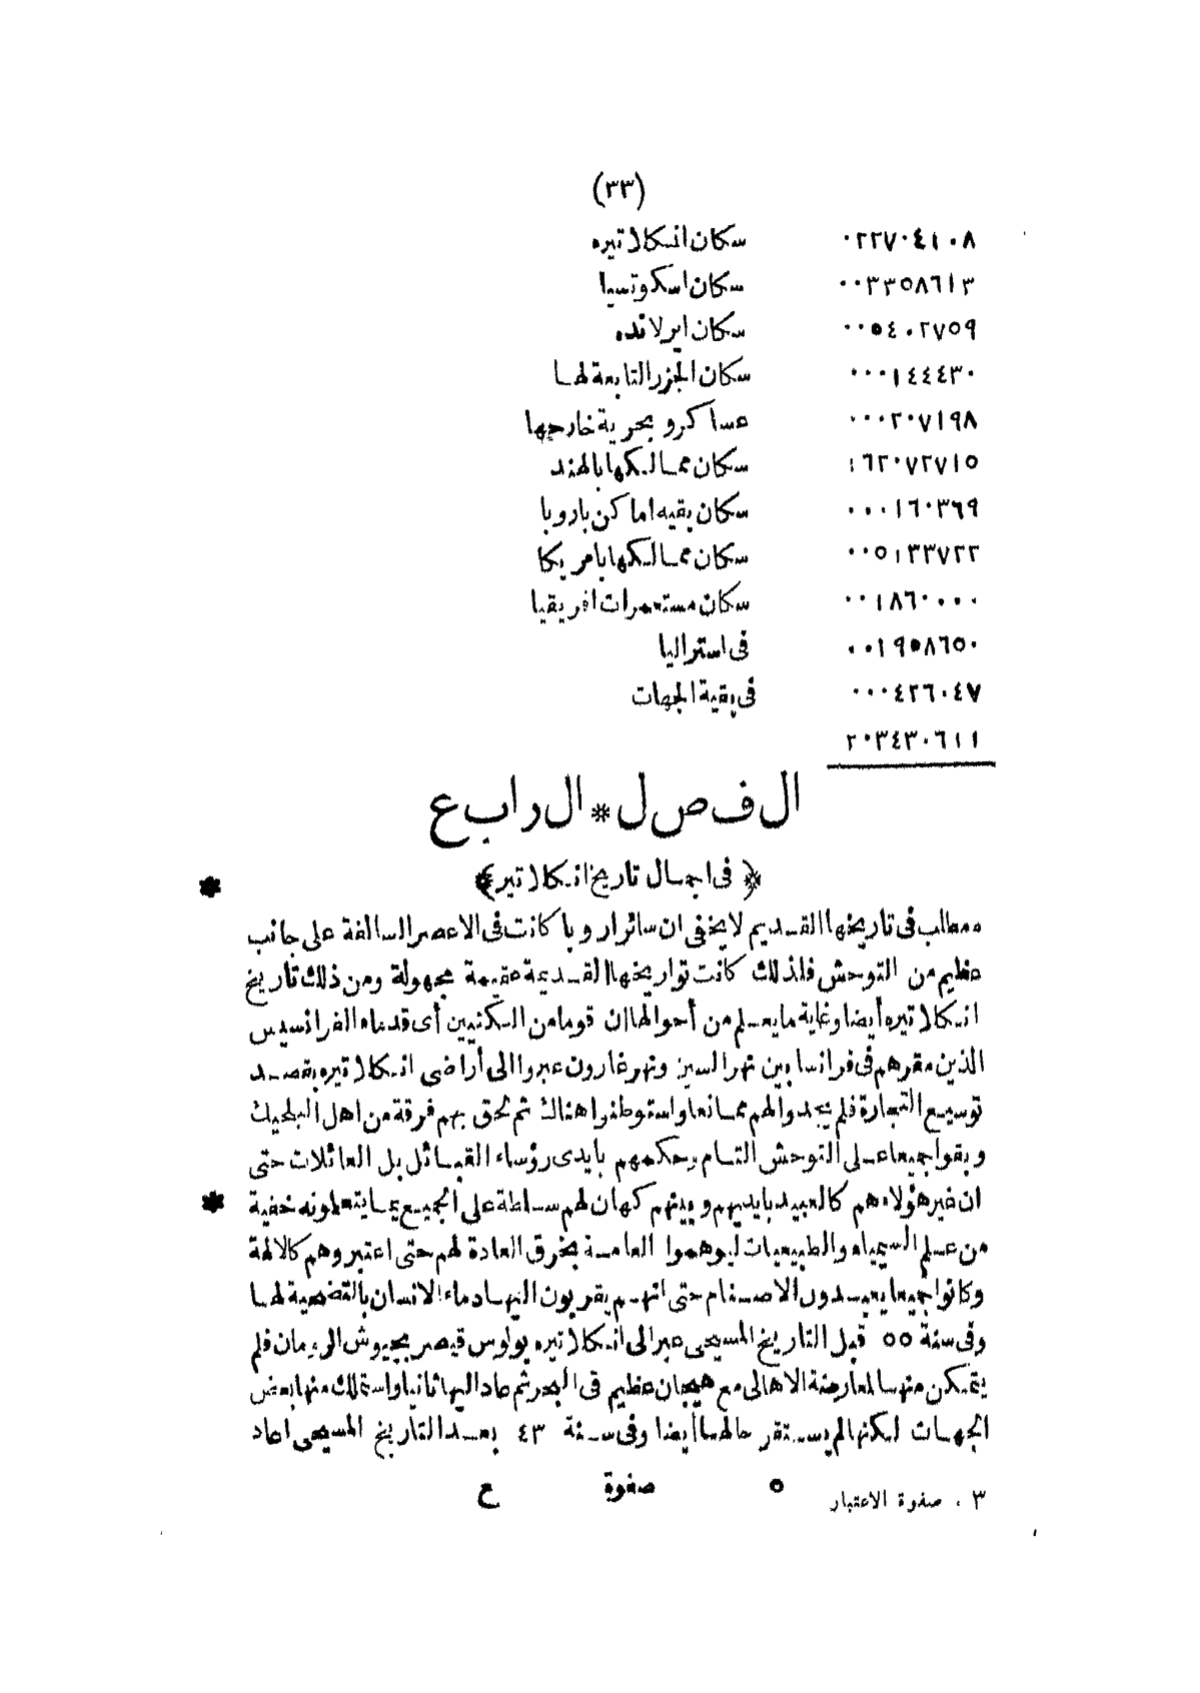 (٣٣)
٠٢٢٧٠٤١٠٨ سكان انكلاتيره
٠٠٣٣٥٨٦١٣ سكان اسكوتسيا
٠٠٥٤٠٢٧٥٩ سكان ايرلانده
٠٠٠١٤٤٤٣٠ سكان الجزر التابعة لها
٠٠٠٢٠٧١٩٨ عساكر وبحرية خارجها
١٦٢٠٧٢٧١٥ سكان ممالكها بالهند
٠٠٠١٦٠٣٦٩ سكان بقيه اماكن باروبا
٠٠٥١٣٣٧٢٢ سكان ممالكها بامريكا
٠٠١٨٦٠٠٠٠ سكان مستعمرات افريقيا
٠٠١٩٥٨٦٥٠ فى استراليا
٠٠٠٤٢٦٠٤٧ فى بقية الجهات
٢٠٣٤٣٠٦١١
الفصل * الرابع
﴿ فى اجمال تاريخ انكلاتير ﴾ *
مطلب فى تاريخها القديم لا يخفى ان سائر اروبا كانت فى الاعصر السالفة على جانب
عظيم من التوحش فلذلك كانت تواريخها القديمة عقيمة مجهولة ومن ذلك تاريخ
انكلاتيره أيضا وغاية ما يعلم من أحوالها ان قوما من السكنيين أى قدماه الفرانسيس
الذين مقرهم فى فرانسا بين نهر السين ونهر غارون عبروا الى أراضى انكلاتيره بقصد
توسيع التجارة فلم يجدوا لهم ممانعا واستوطنوا هناك ثم لحق بهم فرقة من اهل البلجيك
وبقوا جميعا على التوحش التام وحكمهم بايدى رؤساء القبائل بل العائلات حتى
ان غير هؤلاء هم كالعبيد بايديهم وبينهم كهان لهم سلطة على الجميع بما يتعلمونه خفية *
من علم السيمياء والطبيعيات ليوهموا العامة بخرق العادة لهم حتى اعتبروهم كالالهة
وكانوا جميعا يعبدون الاصنام حتى انهم يقربون اليها دماء الانسان بالتضحية لها
وفى سنة ٥٥ قبل التاريخ المسيحى عبر الى انكلاتيره يولوس قيصر بجيوش الرومان فلم
يتمكن منها لمعارضة الاهالى مع هيجان عظيم فى البحر ثم عاد اليها ثانيا واستملك منها بعض
الجهات لكنها لم يستقر حالها أيضا وفى سنة ٤٣ بعد التاريخ المسيحى أعاد
٣ ، صفوة الاعتبار ٥ صفوة ع